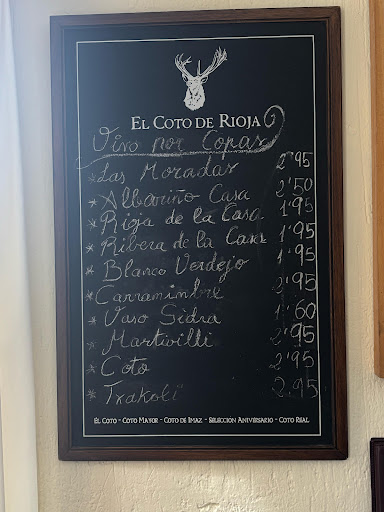 EL COTO DE RIOJA
Vino por Copas
* Las Moradas 2'95
* Albariño Casa 2'50
* Rioja de la Casa 1'95
* Ribera de la Casa 1'95
* Blanco Verdejo 1'95
* Carramimbre 2'95
* Vaso Sidra 1'60
* Martivilli 2'95
* Coto 2'95
* Txakoli 2.95
EL COTO - COTO MAYOR - COTO DE IMAZ - SELECCIÓN ANIVERSARIO - COTO REAL